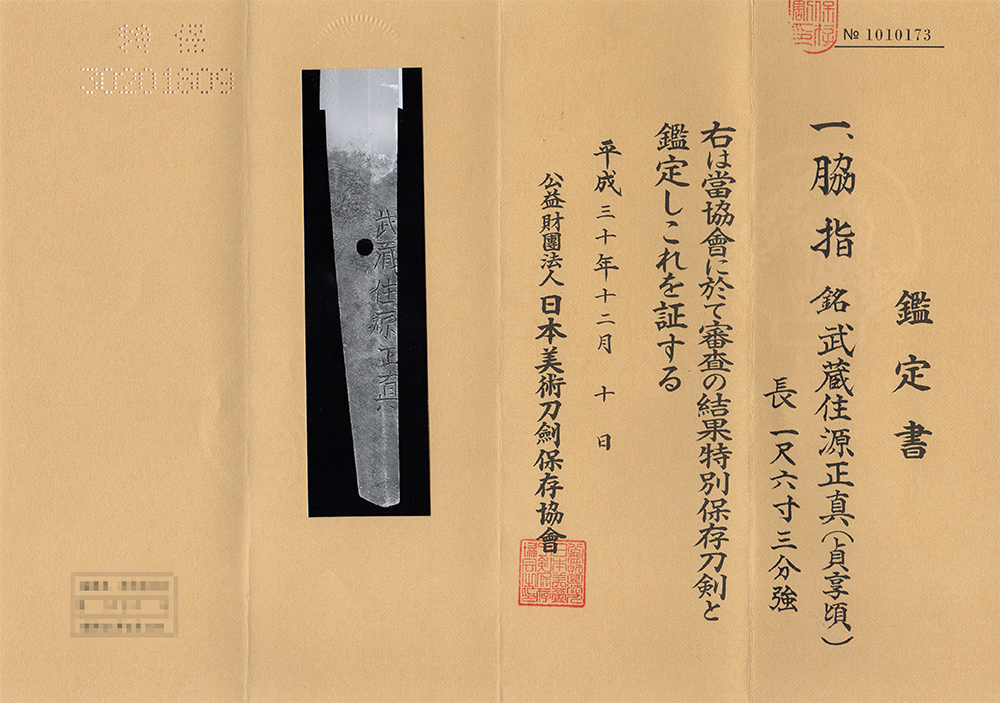 № 1010173
鑑定書
一、脇指 銘 武蔵住源正真(貞享頃)
長一尺六寸三分強
右は當協會に於て審査の結果特別保存刀剣と
鑑定しこれを証する
平成三十年十二月 十 日
公益財團法人日本美術刀劍保存協會
武蔵住源正真
特保
30201809